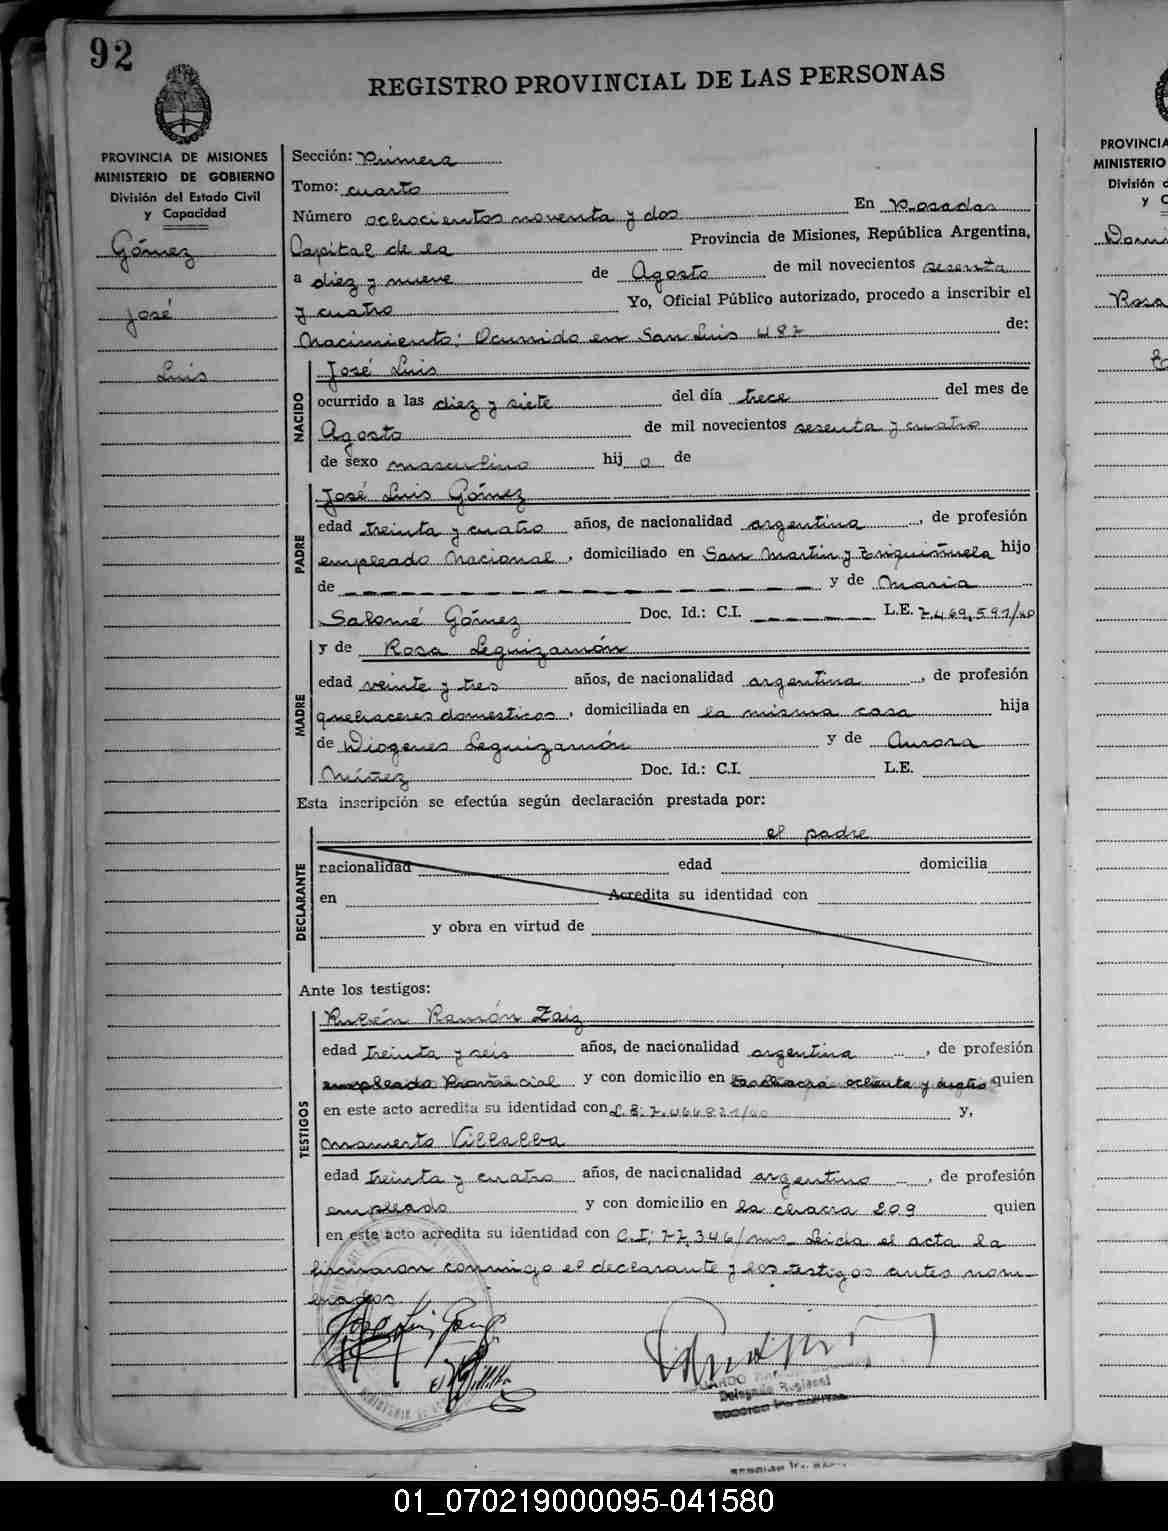 92
REGISTRO PROVINCIAL DE LAS PERSONAS
PROVINCIA DE MISIONES
MINISTERIO DE GOBIERNO
División del Estado Civil
y Capacidad
Gómez
José
Luis
Sección: Primera
Tomo: cuarto
Número ochocientos noventa y dos En Posadas
Capital de la Provincia de Misiones, República Argentina,
a diez y nueve de Agosto de mil novecientos sesenta
y cuatro Yo, Oficial Público autorizado, procedo a inscribir el
Nacimiento: Ocurrido en San Luis 487 de:
NACIDO
José Luis
ocurrido a las diez y siete del día trece del mes de
Agosto de mil novecientos sesenta y cuatro
de sexo masculino hij o de
PADRE
José Luis Gómez
edad treinta y cuatro años, de nacionalidad argentina, de profesión
empleado Nacional, domiciliado en San Martin y hijo
de y de Maria
Salomé Gómez Doc. Id.: C.I. L.E. 7.469.591/40
MADRE
y de Rosa Leguizamón
edad veinte y tres años, de nacionalidad argentina, de profesión
quehaceres domesticos, domiciliada en la misma casa hija
de Diogenes Leguizamón y de Aurora
Núñez Doc. Id.: C.I. L.E.
Esta inscripción se efectúa según declaración prestada por:
DECLARANTE
el padre
nacionalidad edad domicilia
en Acredita su identidad con
y obra en virtud de
Ante los testigos:
TESTIGOS
Rubén Ramón Zaiz
edad treinta y seis años, de nacionalidad argentina, de profesión
empleado Provincial y con domicilio en quien
en este acto acredita su identidad con y,
Mamerto Villalba
edad treinta y cuatro años, de nacionalidad argentino, de profesión
empleado y con domicilio en la chacra 209 quien
en este acto acredita su identidad con C.I. 77.346/mns Leida el acta la
firmaron conmigo el declarante y los testigos antes nom-
brados
José Luis Gomez
Villalba
Delegado Regional
PROVINCIA
MINISTERIO
División d
y C
Rosa
01_070219000095-041580